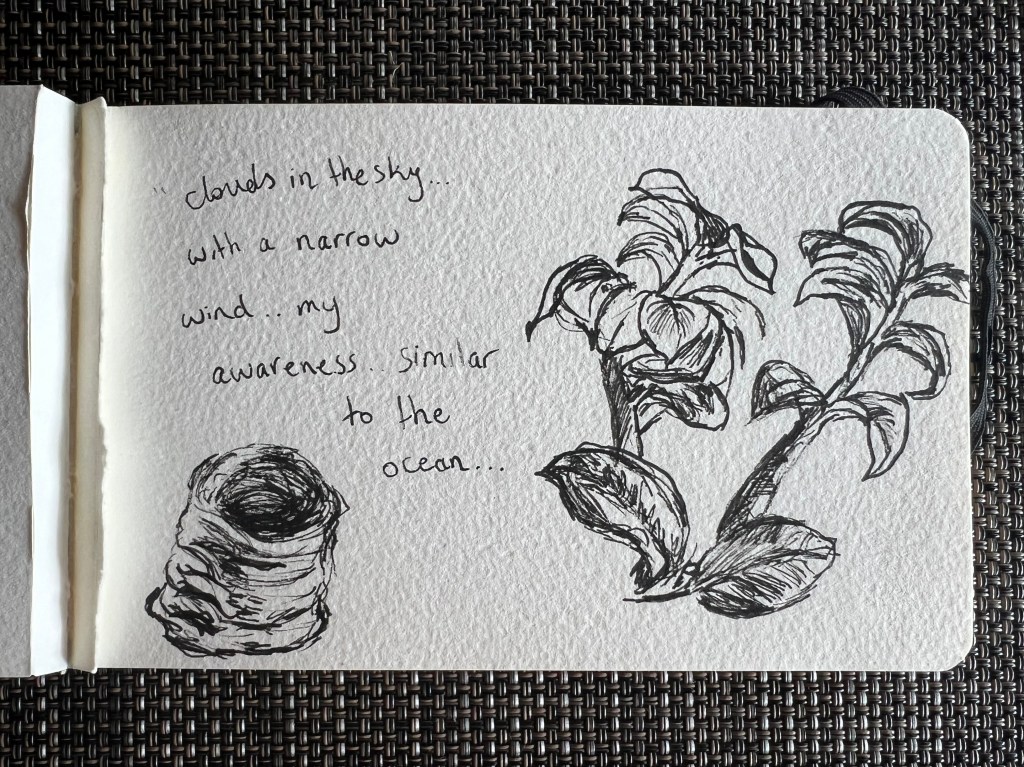 " clouds in the sky...
with a narrow
wind.. my
awareness.. similar
to the
ocean...